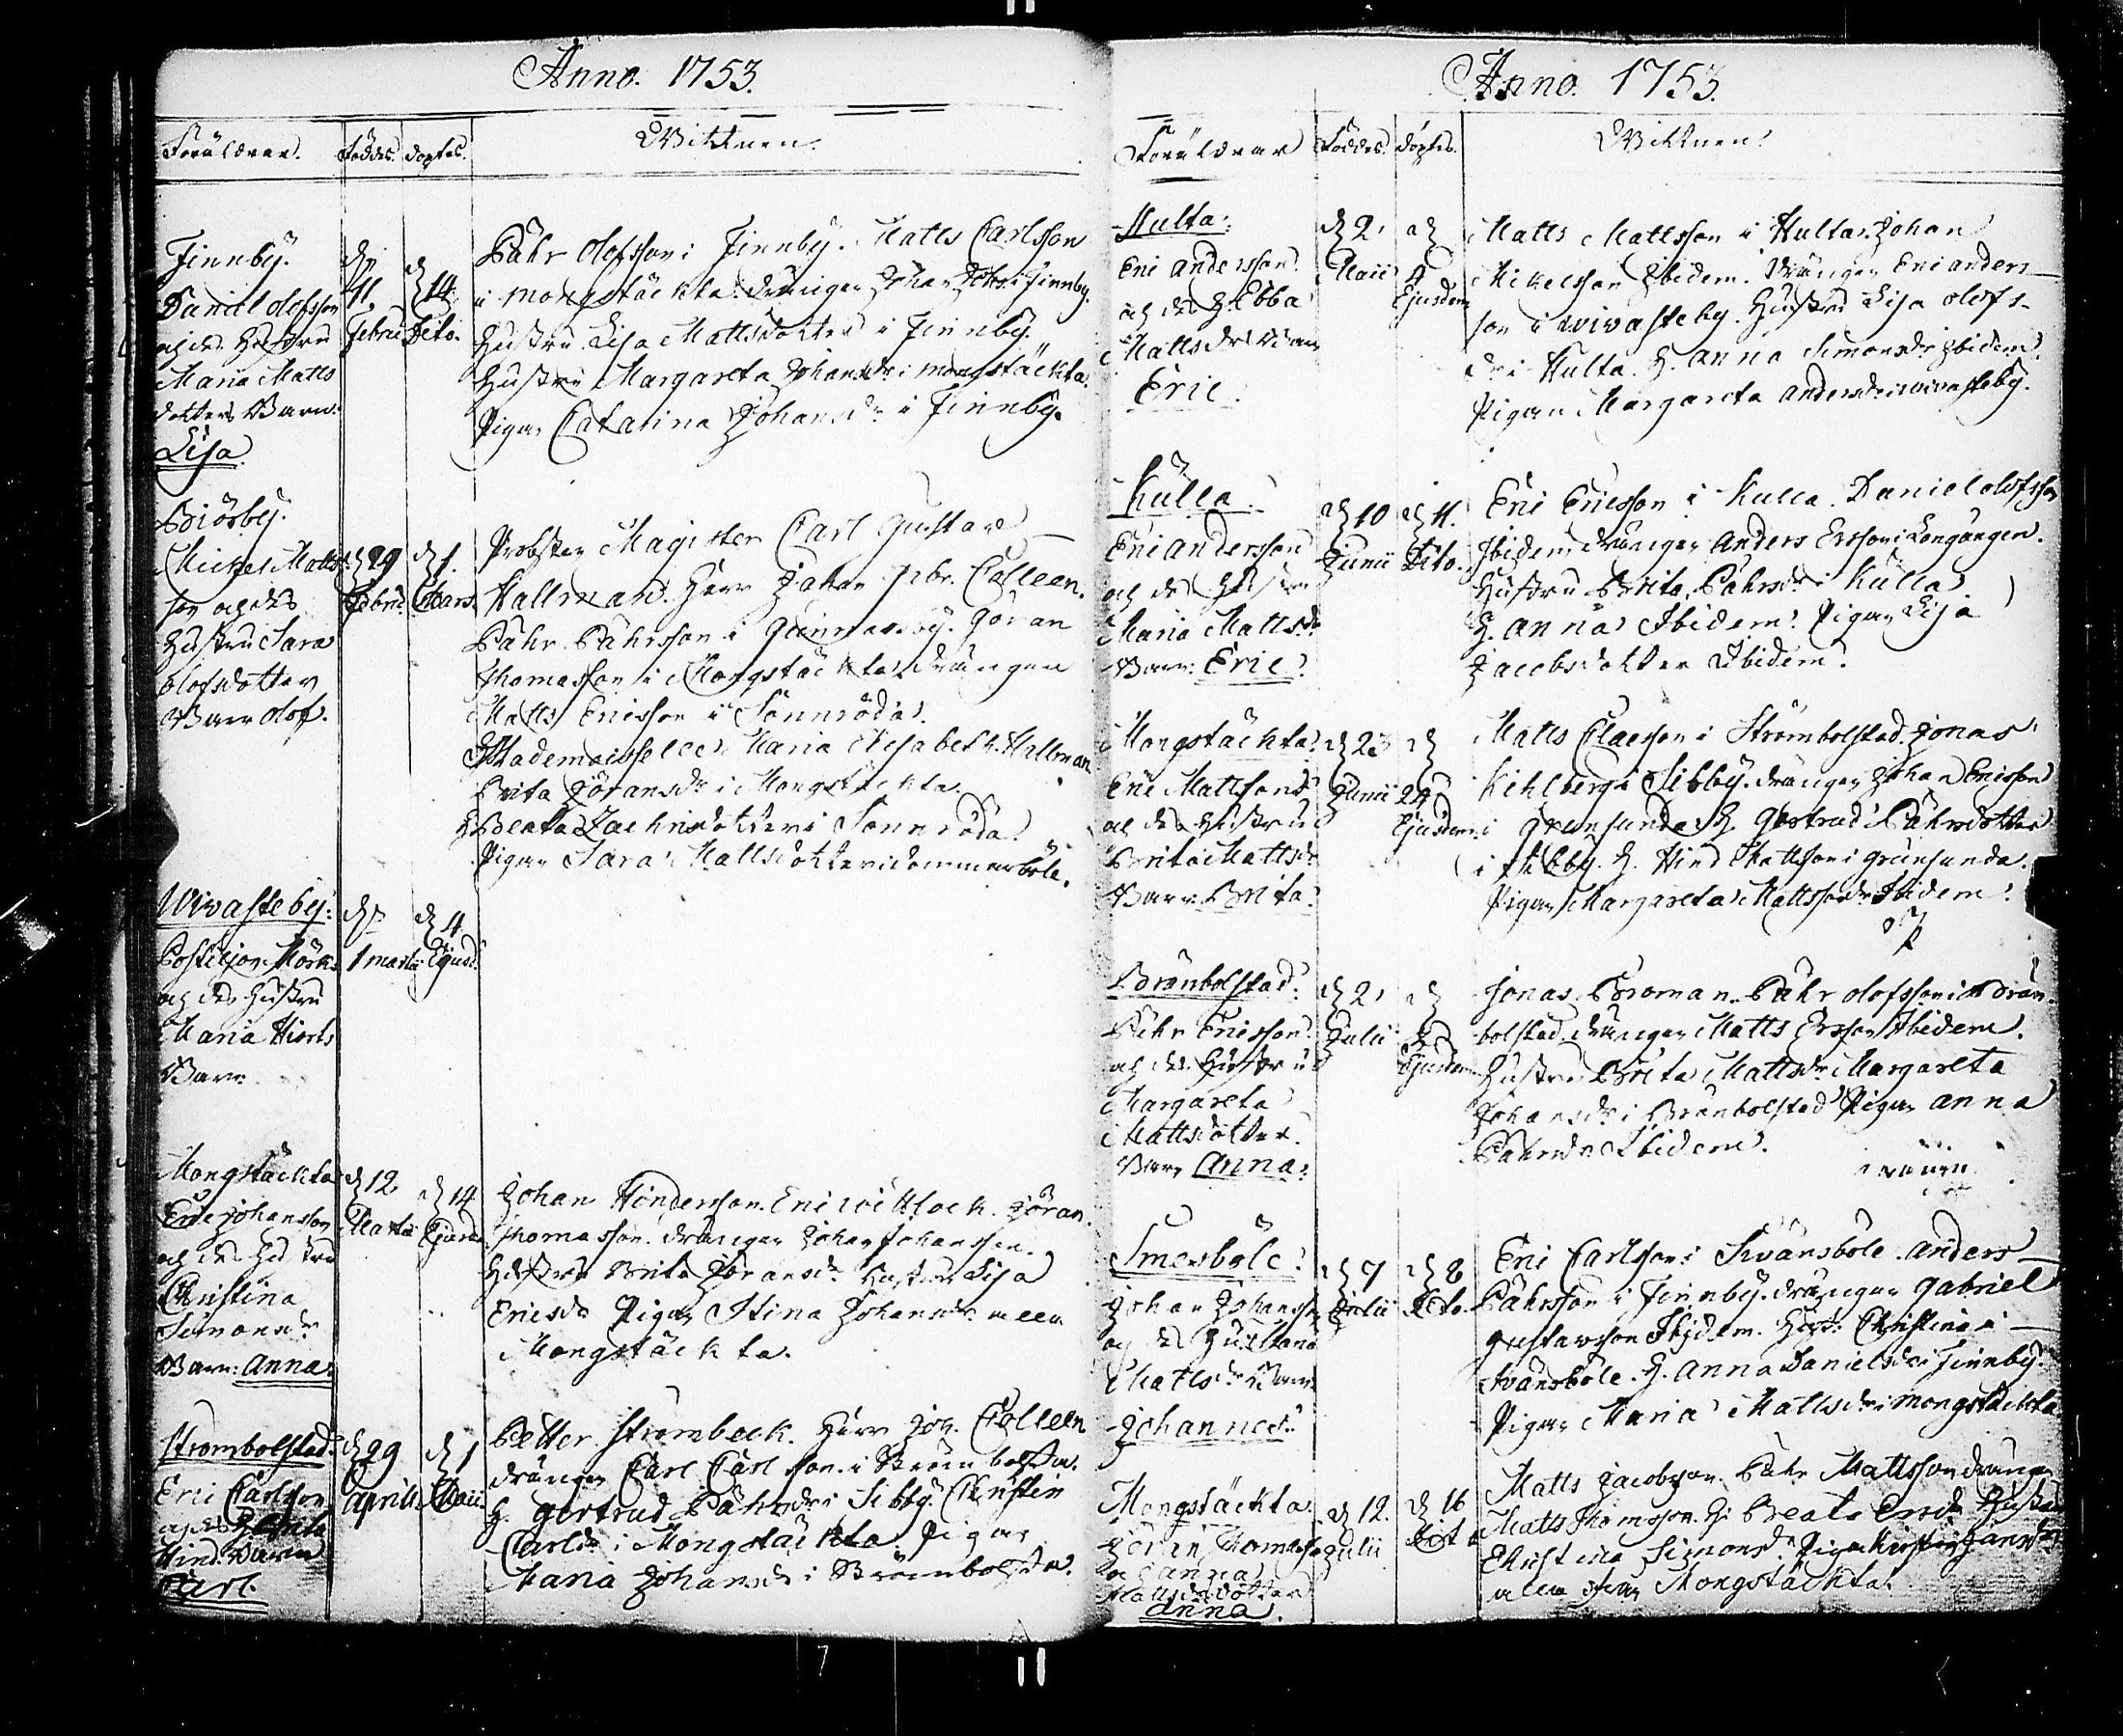 Anno. 1753.
Föräldrar. Föddes. döptes. Wittnen.
Finnby.
Daniel Olofsson
och des Hustru
Maria Matts
dotters Barn.
Lisa
den 11. Febru:
d 14 Dito.
Påhr Olofsson i Finnby. Matts Carlsson
i Mongstäckta. drängen Johan Johs: i Finnby.
Hustru Lisa Mattsdotter i Finnby.
Hustru Margareta Johansdr i Mongstäckta.
Pigan Catarina Johansdr i Finnby.
Biörby.
Michel Matts-
son och des
Hustru Sara
Olofsdotter
Barn Olof.
d 29 Febru:
d 1. Mars.
Probsten Magister Carl Gustav
Hallman. Herr Johan Colleen.
Påhr Påhrsson i Gunnarsby. Göran
Thomasson i Mongstäckta drängen
Matts Ericsson i Sonnröda.
Mademoiselle Maria Elisabeth Hallman
Brita Jöransdr i Mongstäckta.
H Beata Zachrisdotter i Sonnröda.
Pigan Sara Mattsdotter i dommarböle.
Wivasteby:
Postiljon Mörk
och des Hustru
Maria Hiorts
Barn
d 1 martii
d 4 Ejusd:
Mongstäckta
Eric Johansson
och des Hustru
Christina
Simonsdr
Barn: Anna:
d 12 Martii
d 14 Ejusd:
Johan Hindersson. Eric Wittlock. Jöran
Thomasson. drängen Johan Johansson.
Hustru Brita Jöransdr Hustru Lisa
Ericsdr Pigan Stina Johansdr alla
Mongstäckta.
Strömbolstad.
Eric Carlsson
och des H
Hind: Barn
Carl.
d 29 Aprilis
d 1 Maii
Petter Strömbeck. Herr Joh. Colleen
drängen Carl Carlsson i Strömbolsta.
H. Gertrud Påhrsdr i Sibby. Christin
Carlsdr i Mongstäckta. Pigan
Maria Johansdr i Strömbolsta.
Anno. 1753.
Föräldrar Föddes. döptes. Wittnen.
Hulta:
Eric Andersson.
och des H. Ebba
Mattsdr Barn
Eric.
d 2. Maii
d Ejusdem
Matts Mattsson i Hulta. Johan
Mickelsson Ibidem. Drängen Eric Anders-
son i Wivasteby. Hustru Lisa Olofs-
dr i Hulta. H. Anna Simonsdr Ibidem.
Pigan Margareta Andersdr i Wivasteby.
Kulla.
Eric Andersson
och des Hustru
Maria Mattsdr
Barn: Eric.
d 10 Junii
d 11. Dito.
Eric Ericsson i Kulla. Daniel Olofsson
Ibidem drängen Anders Ersson i Longängen.
Hustru Brita Påhrsdr i Kulla.
H. Anna Ibidem. Pigan Lisa
Jacobsdotter Ibidem.
Mongstäckta.
Eric Mattsson
och des Hustru
Brita Mattsdr
Barn Brita.
d 23 Junii
d 24 Ejusdem.
Matts Claesson i Strömbolstad. Jonas
Kihlberg i Sibby. drängen Johan Ericsson
i Grunsunda. H. Gertrud Påhrsdotter
i Sibby. H. Hind: Mattsson i Grunsunda.
Pigan Margareta Mattssondr Ibidem.
Bränbolstad:
Påhr Ericsson.
och des Hustru
Margareta
Mattsdotter.
Barn Anna:
d 2. Julii
d Ejusdem
Jonas Broman. Påhr Olofsson i Brän-
bolstad. drängen Matts Ersson Ibidem.
Hustru Brita Mattsdr Margareta
Johansdr i Bränbolstad Pigan Anna
Påhrsdr Ibidem.
Smersböle.
Johan Johansson
och des Hustru
Mattsdr Barn
Johannes.
d 7 Julii
d 8 Dito.
Eric Carlsson i Svänsböle. Anders
Påhrsson i Finnby. drängen Gabriel
Gustavsson Ibidem. Hust: Christina i
Svänsböle. H. Anna Danielsdr i Finnby.
Pigan Maria Mattsdr i Mongstäckta
Mongstäckta.
Jöran Thomasson
och Anna
Mattsdotter
Anna.
d 12. Julii
d 16 Dito
Matts Jacobsson. Påhr Mattsson drängen
Matts Thomsson. H: Breata Ersdr Hustru
Christina Simonsdr Pigan Kirstin Jansdr
alla ifrån Mongstäckta.